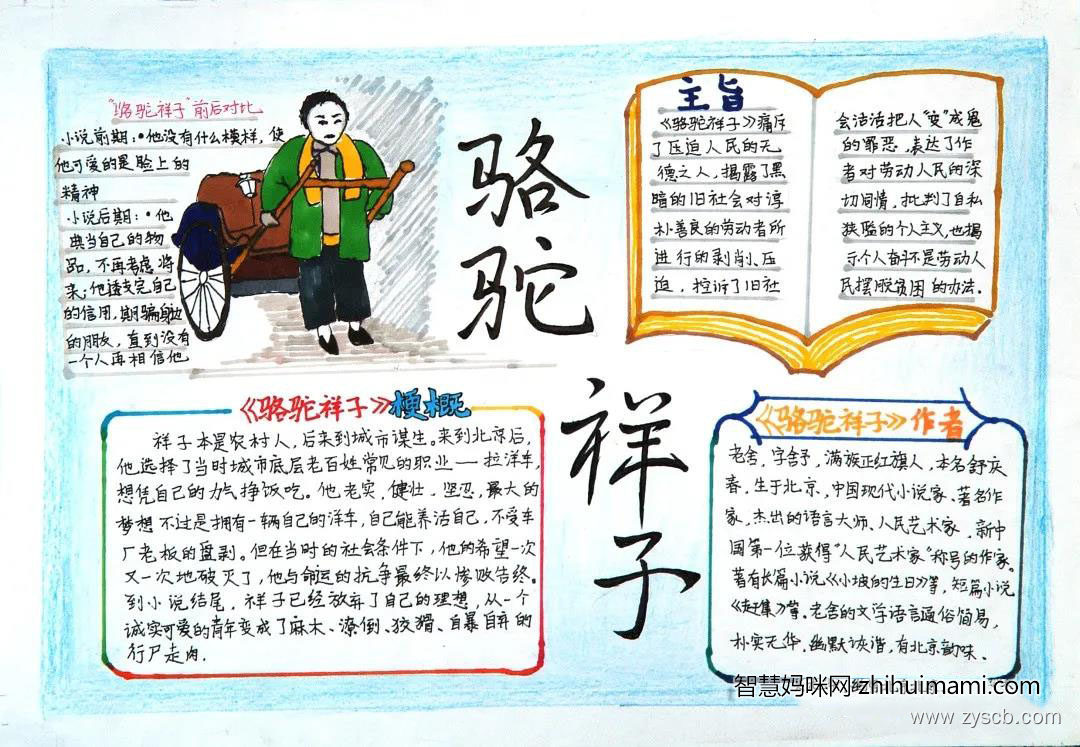 "骆驼祥子"前后对比
小说前期:•他没有什么模样,使
他可爱的是脸上的
精神
小说后期:•他
典当自己的物
品,不再考虑将
来;他透支完自己
的信用,期骗身边
的朋友,直到没有
一个人再相信他
骆驼
祥子
主旨
《骆驼祥子》痛斥
了压迫人民的无
德之人,揭露了黑
暗的旧社会对淳
朴善良的劳动者所
进行的剥削、压
迫,控诉了旧社
会活活把人"变"成鬼
的罪恶,表达了作
者对劳动人民的深
切同情,批判了自私
狭隘的个人主义,也揭
示个人奋斗不是劳动人
民摆脱贫困的办法.
《骆驼祥子》梗概
祥子本是农村人,后来到城市谋生。来到北京后,
他选择了当时城市底层老百姓常见的职业——拉洋车,
想凭自己的力气挣饭吃。他老实,健壮,坚忍,最大的
梦想不过是拥有一辆自己的洋车,自己能养活自己,不受车
厂老板的盘剥。但在当时的社会条件下,他的希望一次
又一次地破灭了,他与命运的抗争最终以惨败告终。
到小说结尾,祥子已经放弃了自己的理想,从一个
诚实可爱的青年变成了麻木、潦倒、狡猾、自暴自弃的
行尸走肉.
《骆驼祥子》作者
老舍,字舍予,满族正红旗人,本名舒庆
春,生于北京,中国现代小说家、著名作
家,杰出的语言大师、人民艺术家,新中
国第一位获得"人民艺术家"称号的作家。
著有长篇小说《小坡的生日》等,短篇小说
《赶集》等。老舍的文学语言通俗简易,
朴实无华,幽默诙谐,有北京韵味.
智慧妈咪网-zhihuimami.com
www.zyscb.com